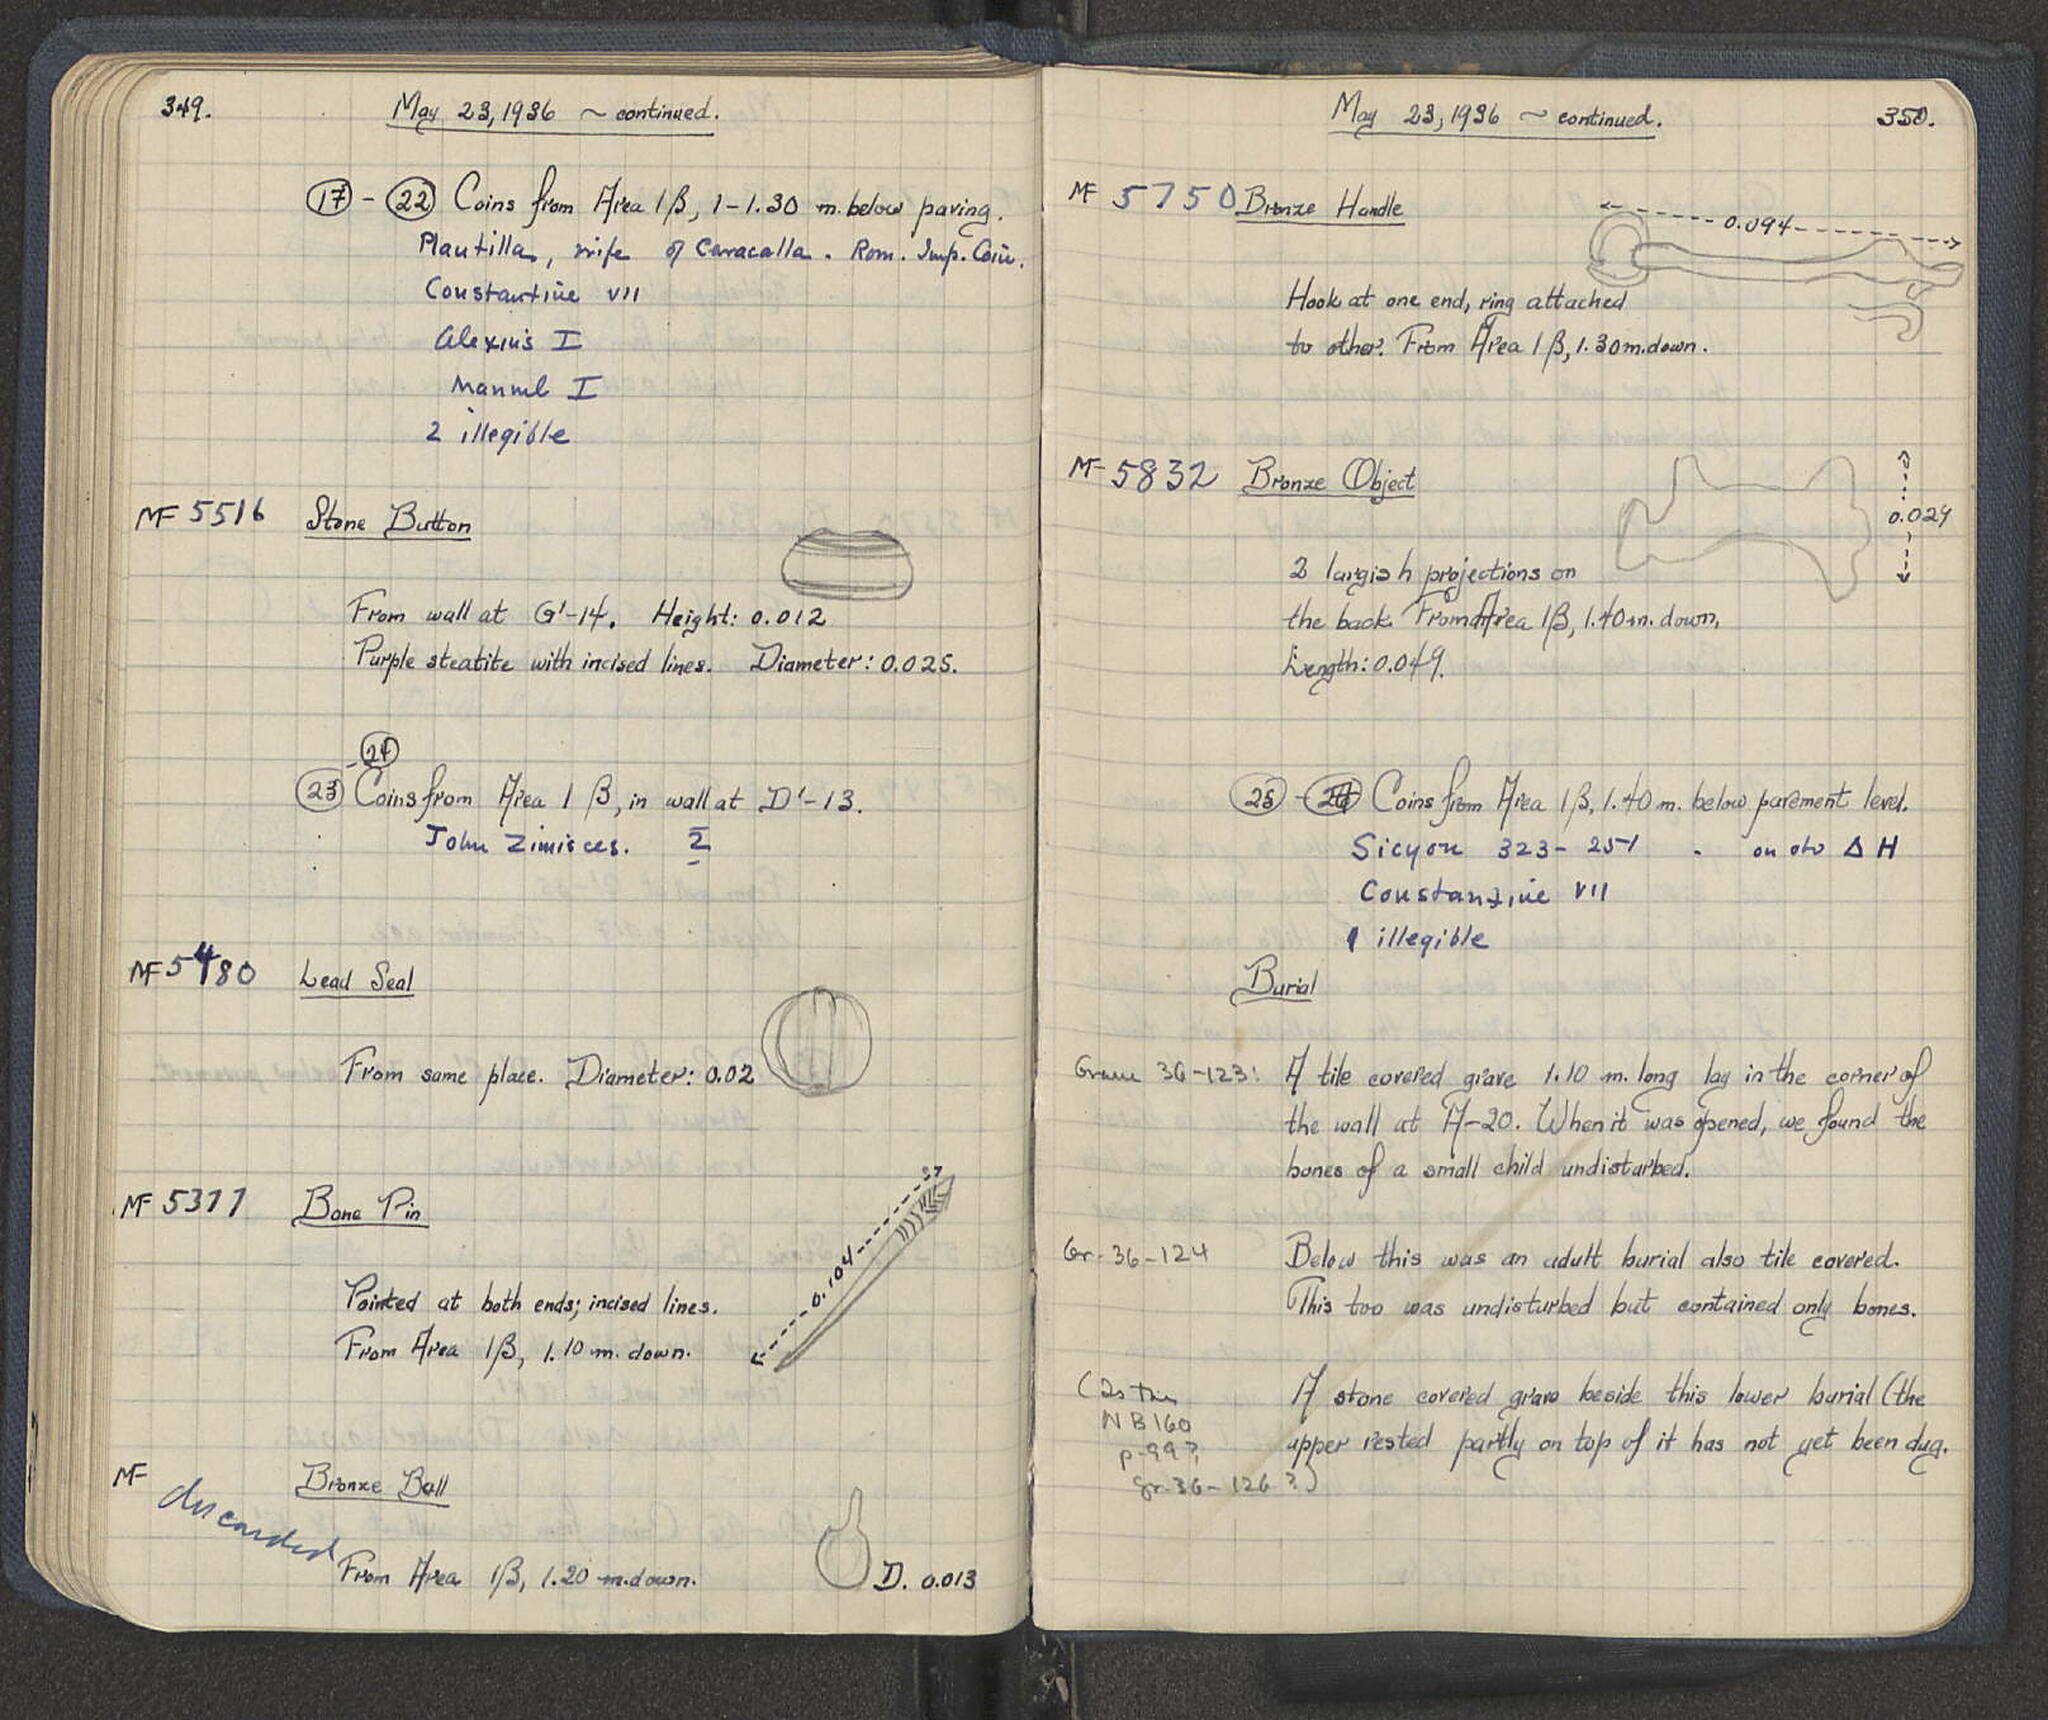 349.
May 23, 1936 ~ continued.
17 - 22 Coins from Area 1β, 1-1.30 m. below paving.
Plautilla, wife of Caracalla. Rom. Imp. Coin.
Constantine VII
Alexius I
Manuel I
2 illegible
MF 5516 Stone Button
From wall at G'-14. Height: 0.012
Purple steatite with incised lines. Diameter: 0.025.
- 24
23 Coins from Area 1 β, in wall at D'-13.
John Zimisces. 2
MF 5480 Lead Seal
From same place. Diameter: 0.02
MF 5377 Bone Pin
0.104
Pointed at both ends; incised lines.
From Area 1β, 1.10 m. down.
MF discarded Bronze Ball
From Area 1β, 1.20 m. down.
D. 0.013
May 23, 1936 ~ continued.
350.
MF 5750 Bronze Handle
0.094
Hook at one end, ring attached
to other. From Area 1β, 1.30 m. down.
MF 5832 Bronze Object
0.029
2 largish projections on
the back. From Area 1β, 1.40 m. down.
Length: 0.049.
25 - Coins from Area 1β, 1.40 m. below pavement level.
Sicyon 323-251 . on obv Δ H
Constantine VII
1 illegible
Burial
Grave 36-123: A tile covered grave 1.10 m. long lay in the corner of
the wall at A-20. When it was opened, we found the
bones of a small child undisturbed.
Gr. 36-124 Below this was an adult burial also tile covered.
This too was undisturbed but contained only bones.
(Is this
NB 160
p. 99?
gr. 36-126?)
A stone covered grave beside this lower burial (the
upper rested partly on top of it has not yet been dug.